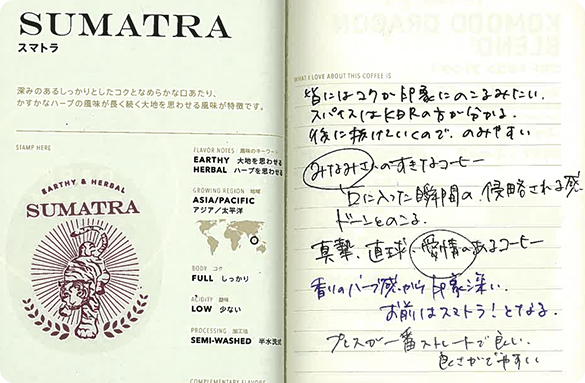 SUMATRA
スマトラ
深みのあるしっかりとしたコクとなめらかな口あたり、
かすかなハーブの風味が長く続く大地を思わせる風味が特徴です。
STAMP HERE
EARTHY & HERBAL
SUMATRA
FLAVOR NOTES 風味のキーワード
EARTHY 大地を思わせる
HERBAL ハーブを思わせる
GROWING REGION 地域
ASIA/PACIFIC
アジア／太平洋
BODY コク
FULL しっかり
ACIDITY 酸味
LOW 少ない
PROCESSING 加工法
SEMI-WASHED 半水洗式
COMPLEMENTARY FLAVORS
KOMODO DRAGON
BLEND
WHAT I LOVE ABOUT THIS COFFEE IS
皆にはコクが印象にのこるみたい。
スパイスはKDBの方が分かる。
後に抜けていくので、のみやすい
みなみさんのすきなコーヒー
口に入った瞬間の侵略される感
ドーンとのこる。
真摯、直球、愛情のあるコーヒー
香りのハーブ感から印象深い。
お前はスマトラ！となる。
プレスが一番ストレートで良い。
良さがでやすい